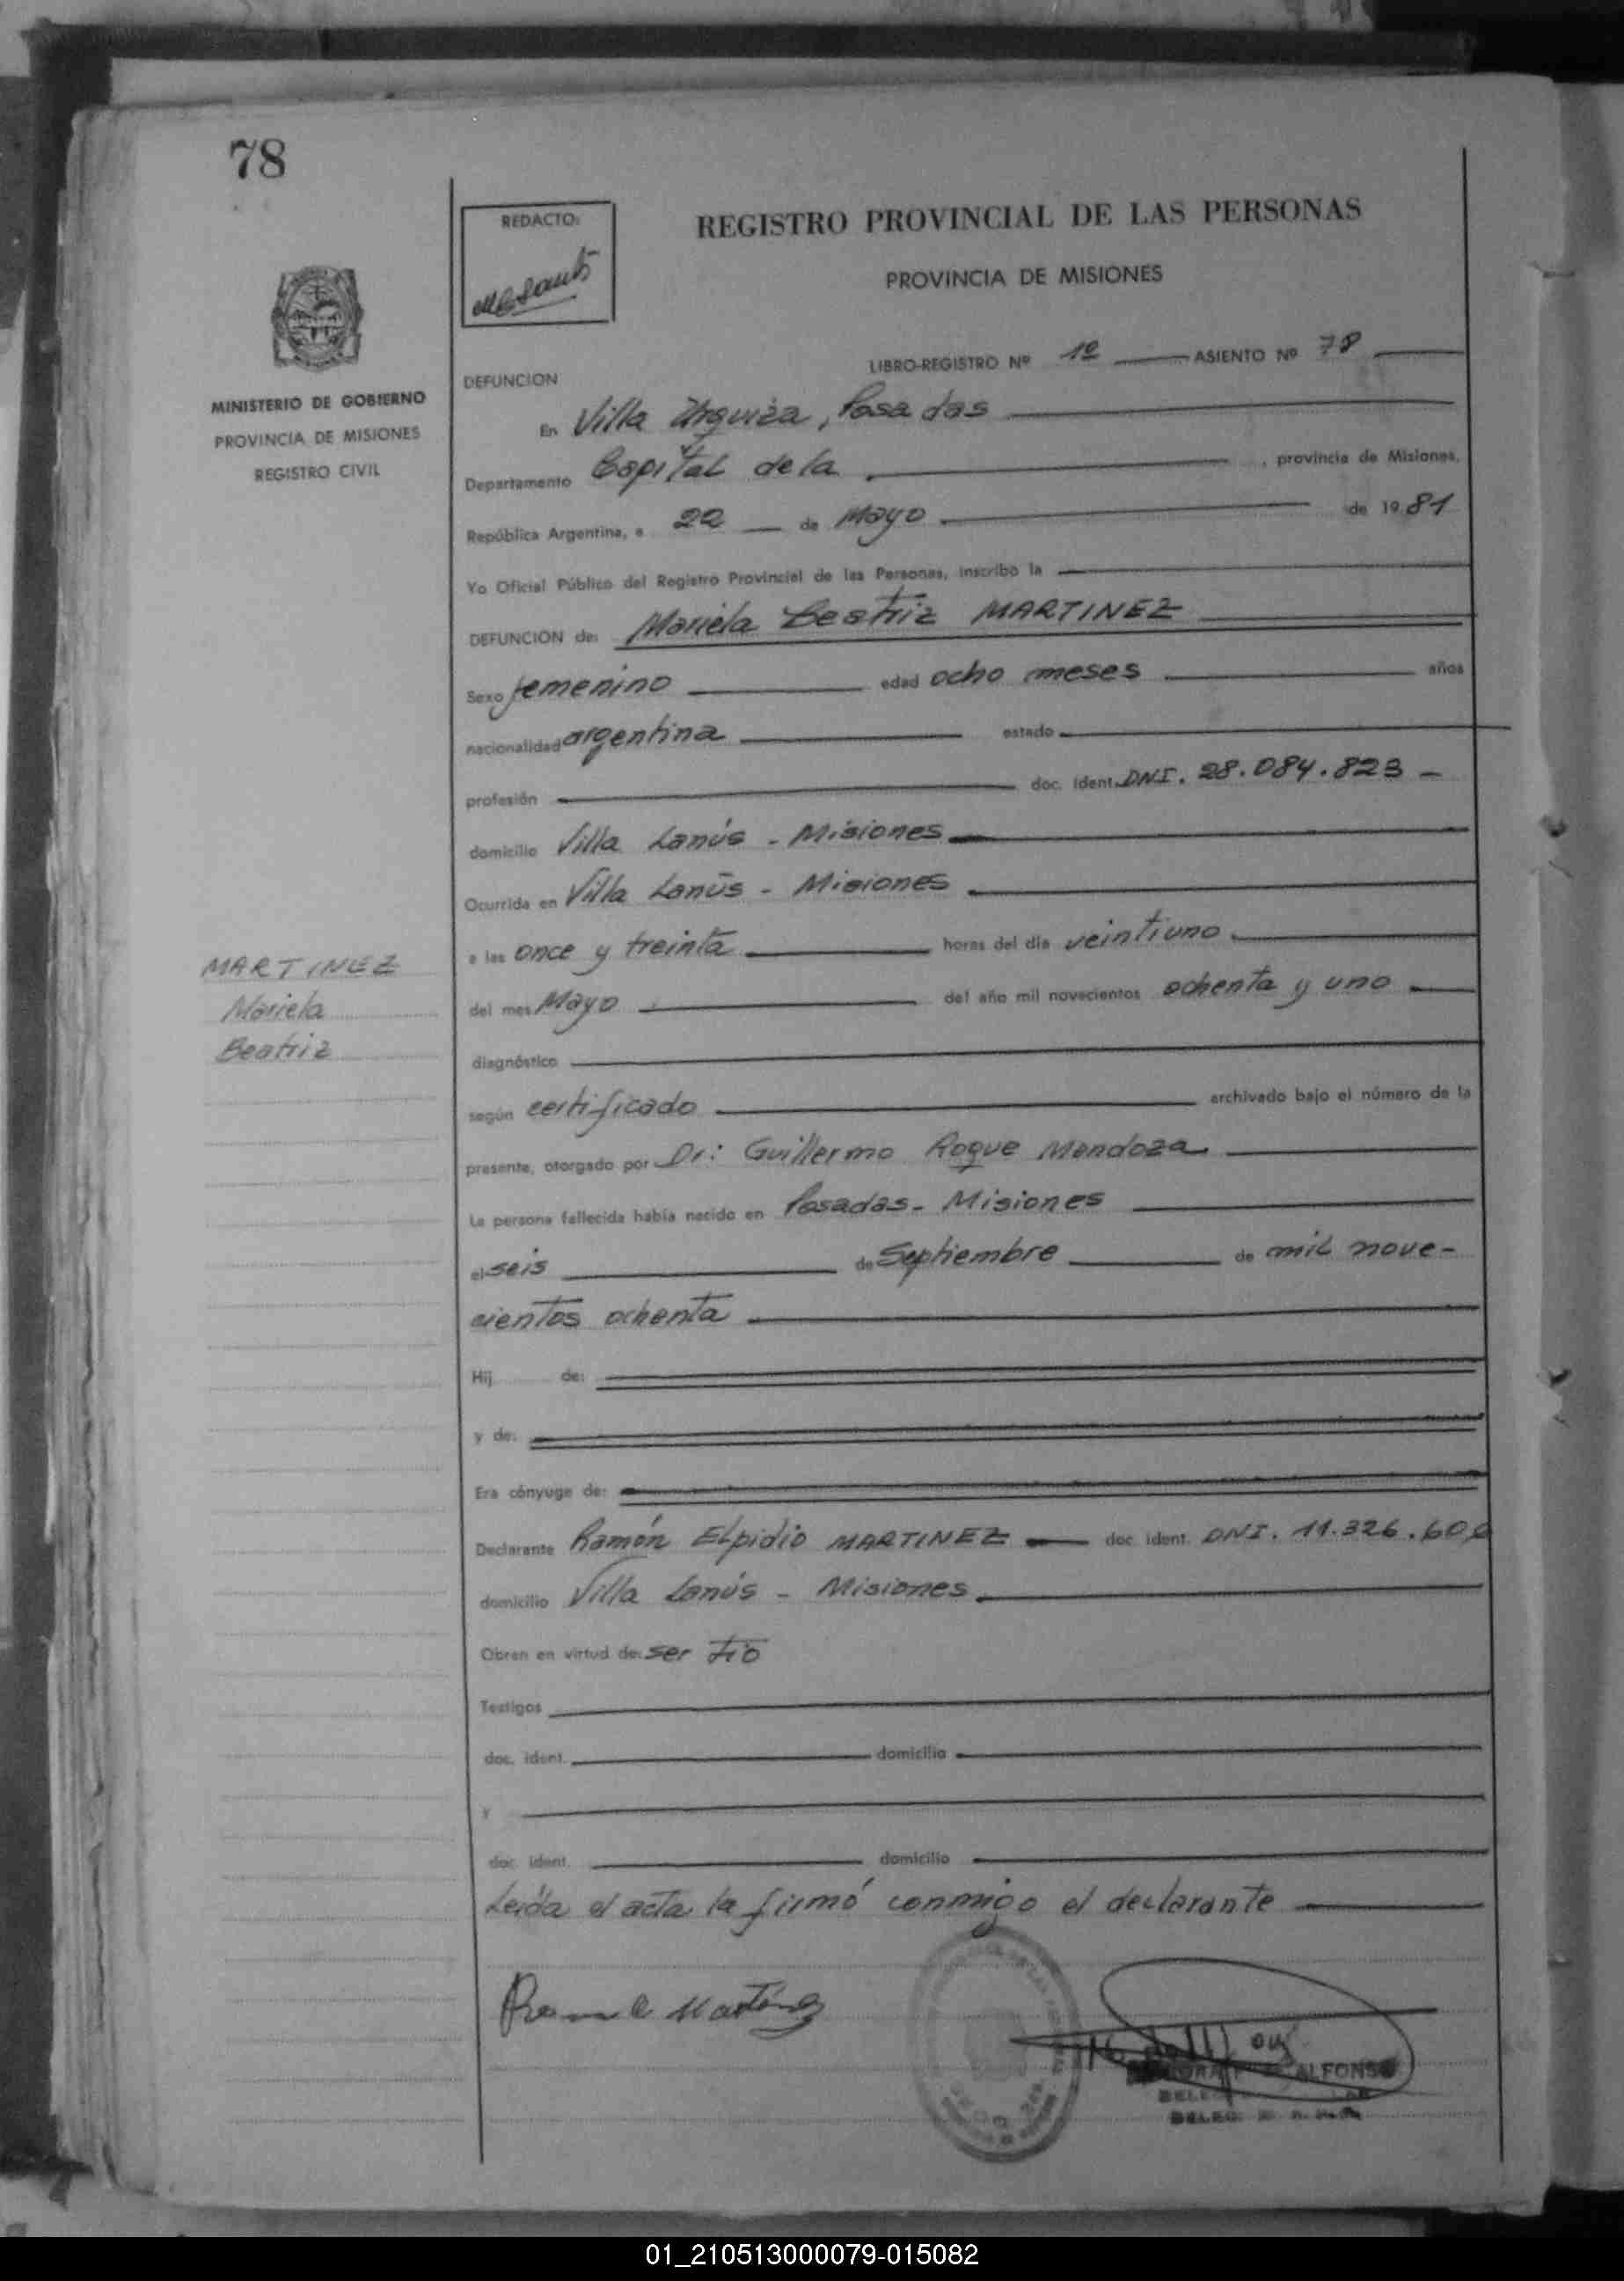 78
REDACTO:
REGISTRO PROVINCIAL DE LAS PERSONAS
PROVINCIA DE MISIONES
MINISTERIO DE GOBIERNO
PROVINCIA DE MISIONES
REGISTRO CIVIL
LIBRO-REGISTRO Nº 1º ASIENTO Nº 78
DEFUNCION
En Villa Urquiza, Posadas
Departamento Capital de la , provincia de Misiones,
República Argentina, a 22 de Mayo de 1981
Yo Oficial Público del Registro Provincial de las Personas, inscribo la
DEFUNCION de: Mariela Beatriz MARTINEZ
Sexo femenino edad ocho meses años
nacionalidad argentina estado
profesión doc. ident. DNI. 28.084.823 -
domicilio Villa Lanús - Misiones
Ocurrida en Villa Lanús - Misiones
a las once y treinta horas del día veintiuno
del mes Mayo del año mil novecientos ochenta y uno
diagnóstico
según certificado archivado bajo el número de la
presente, otorgado por Dr: Guillermo Roque Mendoza
La persona fallecida había nacido en Posadas - Misiones
el seis de Septiembre de mil nove-
cientos ochenta
Hij de:
y de:
Era cónyuge de:
Declarante Ramón Elpidio MARTINEZ doc. ident. DNI. 11.326.606
domicilio Villa Lanús - Misiones
Obran en virtud de: ser tío
Testigos
doc. ident. domicilio
y
doc. ident. domicilio
Leída el acta la firmó conmigo el declarante
MARTINEZ
Mariela
Beatriz
Ramon E Martínez
ALFONSO
01_210513000079-015082